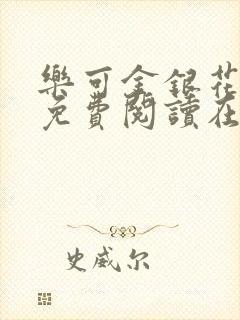 樂可金銀花
免費閱讀在
史威尔